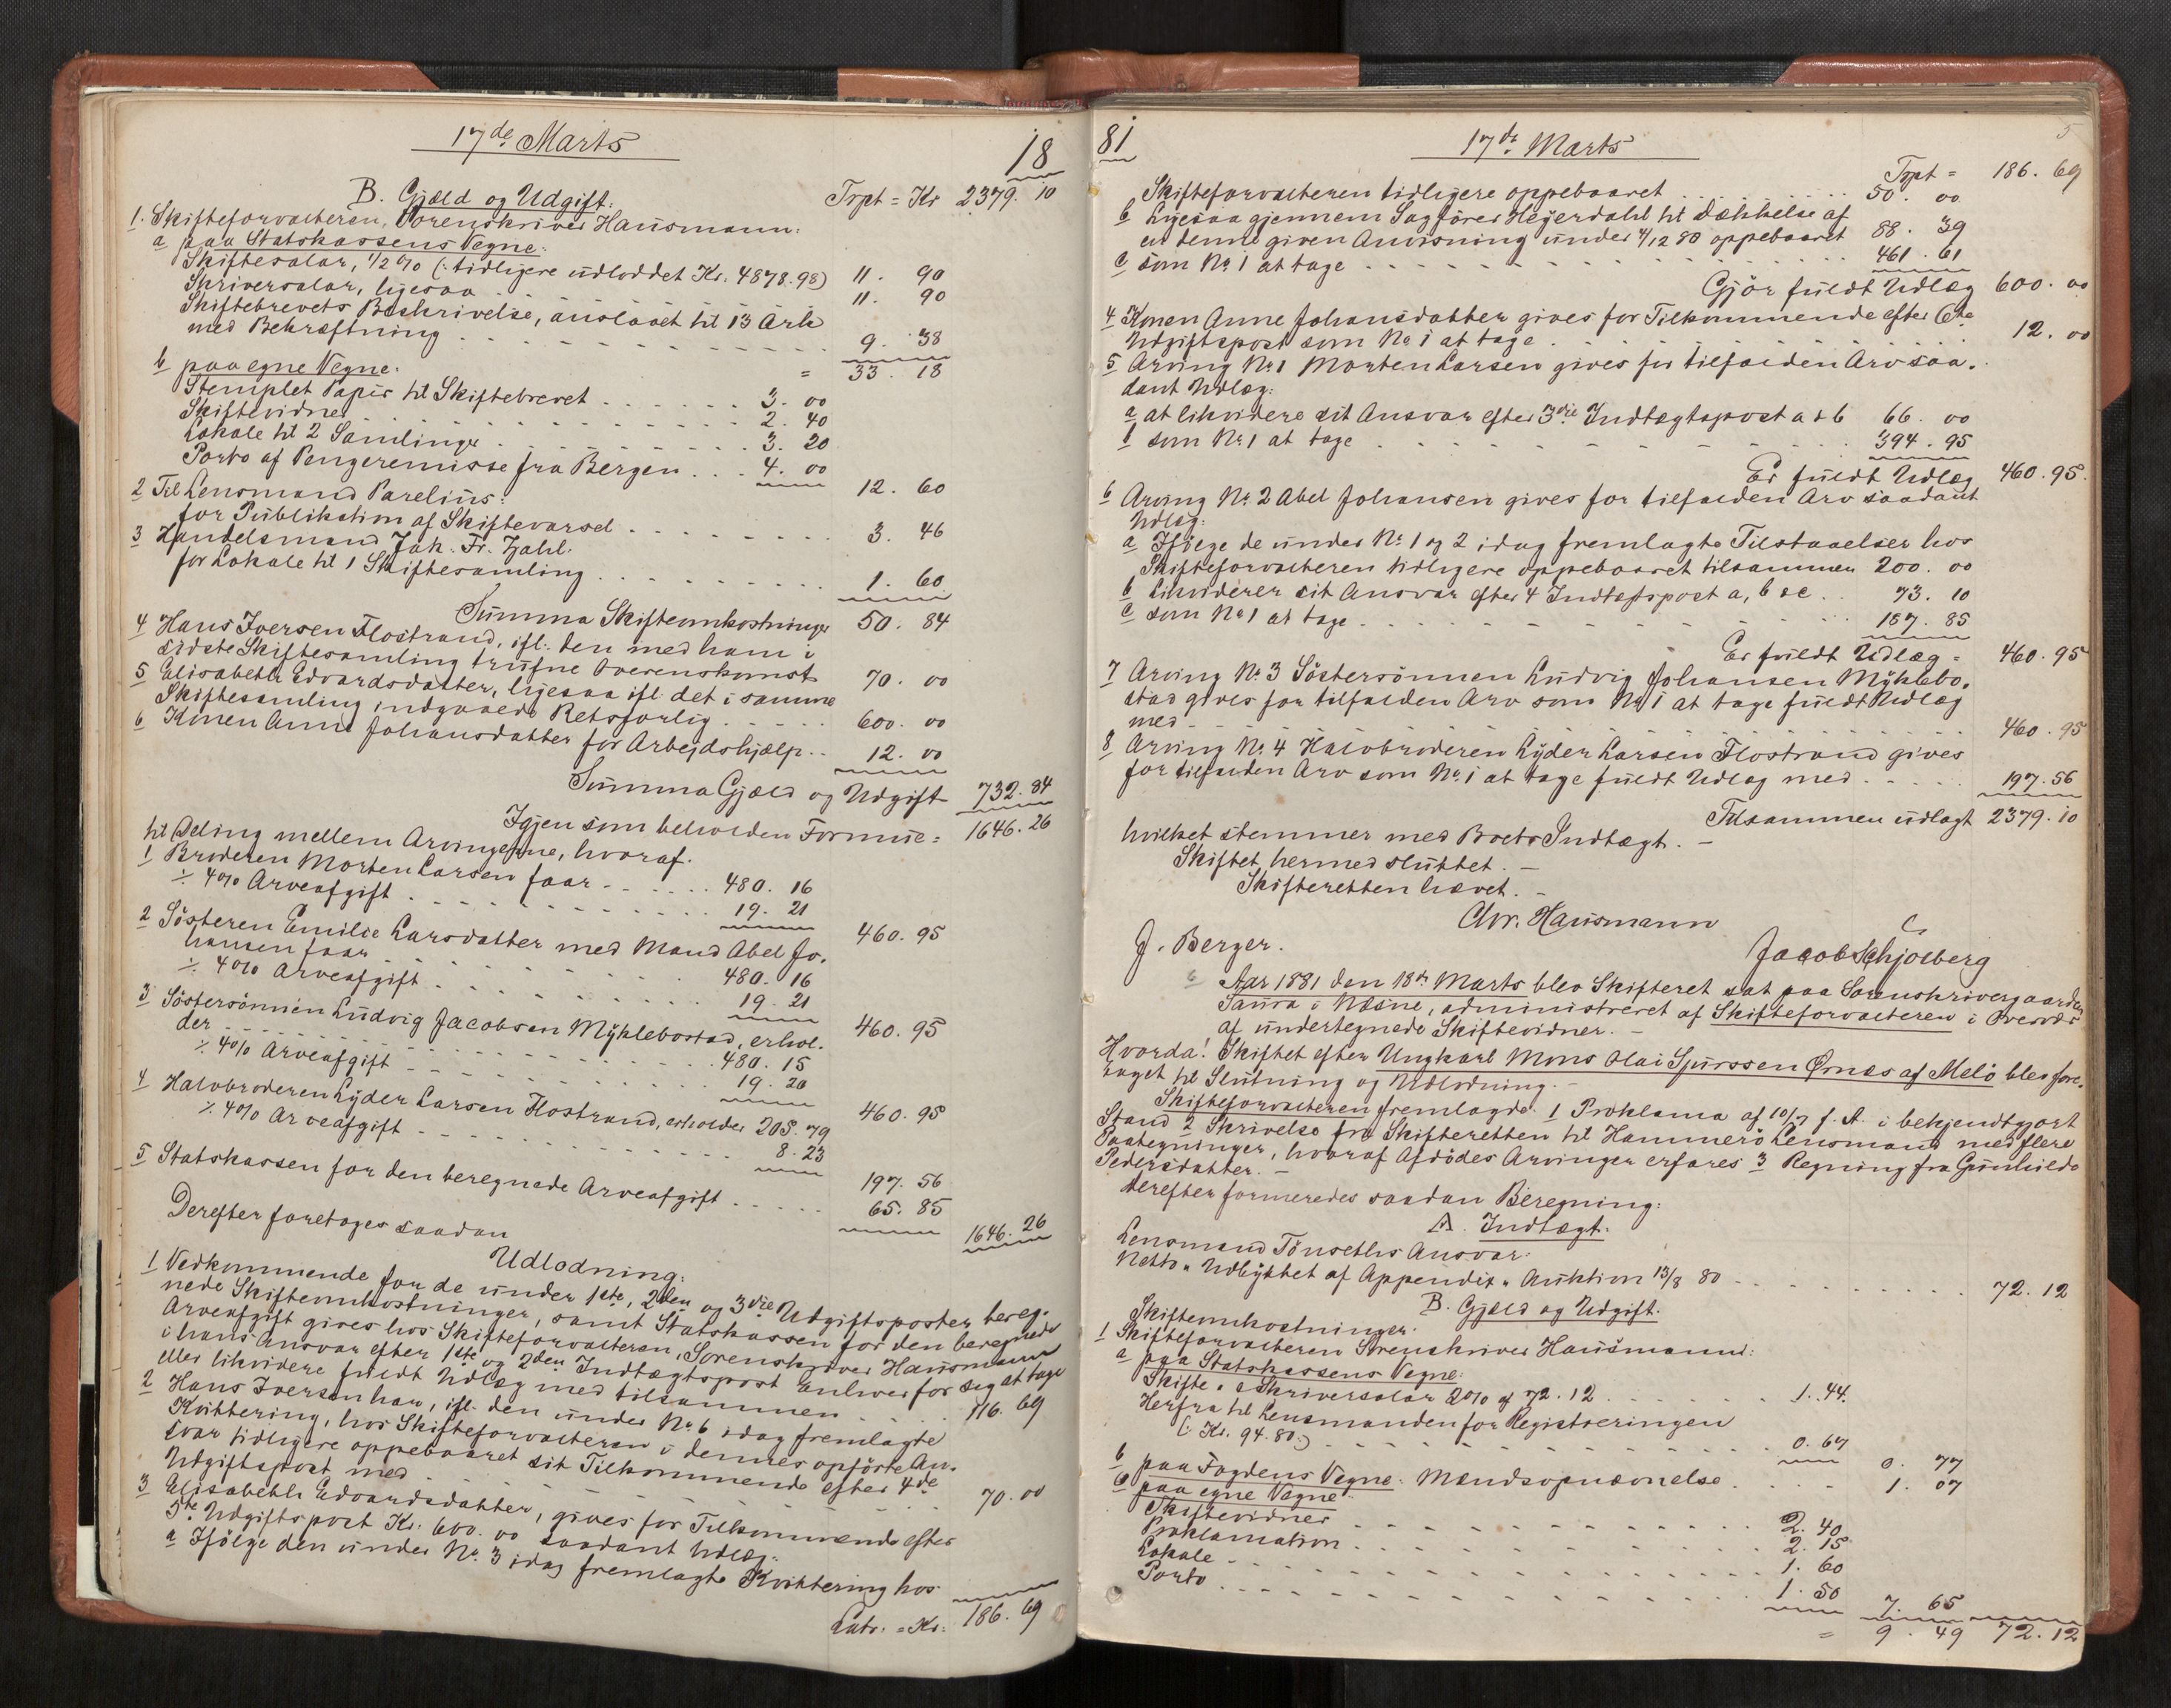 17de Marts
18
Trpt = Kr 2379. 10
B. Gjæld og Udgift:
1. Skifteforvalteren, Sorenskriver Hausmann:
a paa Statskassens Vegne:
Skiftesalar, 1/2 % (: tidligere udloddet Kr. 4878.98) 11. 90
Skriversalar, ligesaa 11. 90
Skiftebrevets Beskrivelse, anslaaet til 13 Ark
med Bekræftning 9. 38
= 33. 18
b paa egne Vegne:
Stemplet Papir til Skiftebrevet 3. 00
Skiftevidner 2. 40
Lokale til 2 Samlinger 3. 20
Porto af Pengeremisse fra Bergen 4. 00
12. 60
2 Til Lensmand Parelius:
for Publikation af Skiftevarsel 3. 46
3 Handelsmand Jak. Fr. Zahl.
for Lokale til 1 Skiftesamling 1. 60
Summa Skifteomkostninger 50. 84
4 Hans Iversen Flostrand, ifl. den med ham i
sidste Skiftesamling trufne Overenskomst 70. 00
5 Elisabeth Edvardsdatter, ligesaa ifl. det i samme
Skiftesamling indgaaede Retsforlig 600. 00
6 Konen Anne Johansdatter for Arbejdshjælp 12. 00
Summa Gjæld og Udgift 732. 84
Igjen som beholden Formue = 1646. 26
til Deling mellem Arvingerne, hvoraf:
1 Broderen Morten Larsen faar 480. 16
÷ 4% Arveafgift 19. 21
460. 95
2 Søsteren Emilie Larsdatter med Mand Abel Jo-
hansen faar 480. 16
÷ 4% Arveafgift 19. 21
460. 95
3 Søstersønnen Ludvig Jacobsen Myklebostad, erhol-
der 480. 15
÷ 4% Arveafgift 19. 20
460. 95
4 Halvbroderen Lyder Larsen Flostrand, erholder 205. 79
÷ 4% Arveafgift 8. 23
197. 56
5 Statskassen for den beregnede Arveafgift 65. 85
1646. 26
Derefter foretoges saadan
Udlodning:
1 Vedkommende for de under 1ste, 2den og 3die Udgiftsposter bereg-
nede Skifteomkostninger, samt Statskassen for den beregnede
Arveafgift gives hos Skifteforvalteren, Sorenskriver Hausmann
i hans Ansvar efter 1ste og 2den Indtægtspost Enhver for sig at tage
eller likvidere fuldt Udlæg med tilsammen 116. 69
2 Hans Iversen har, ifl. den under No 6 idag fremlagte
Kvittering, hos Skifteforvalteren i dennes opførte An-
svar tidligere oppebaaret sit Tilkommende efter 4de
Udgiftspost med 70. 00
3 Elisabeth Edvardsdatter, gives for Tilkommende efter
5te Udgiftspost Kr. 600. 00 saadant Udlæg:
a Ifølge den under No. 3 idag fremlagte Kvittering hos
Latr: = Kr: 186. 69
81
17de Marts
5
Trpt = 186. 69
Skifteforvalteren tidligere oppebaaret 50. 00
b Ligesaa gjennem Sagfører Heyerdahl til Dækkelse af
en denne given Anvisning under 4/12 80 oppebaaret 88. 39
c som No 1 at tage 461. 61
Gjør fuldt Udlæg 600. 00
4 Konen Anne Johansdatter gives for Tilkommende efter 6te
Udgiftspost som No 1 at tage 12. 00
5 Arving No 1 Morten Larsen gives for tilfalden Arv saa-
dant Udlæg:
a at likvidere sit Ansvar efter 3die Indtægtspost a & b 66. 00
b som No 1 at tage 394. 95
Er fuldt Udlæg 460. 95.
6 Arving No. 2 Abel Johansen gives for tilfalden Arv saadant
Udlæg:
a Ifølge de under No. 1 og 2 idag fremlagte Tilstaaelser hos
Skifteforvalteren tidligere oppebaaret tilsammen 200. 00
b Likviderer sit Ansvar efter 4 Indtægtspost a, b & c 73. 10
c som No 1 at tage 187. 85
Er fuldt Udlæg = 460. 95
7 Arving No. 3 Søstersønnen Ludvig Johansen Myklebo-
stad gives for tilfalden Arv som No 1 at tage fuldt Udlæg
med 460. 95
8 Arving No. 4 Halvbroderen Lyder Larsen Flostrand gives
for tilfalden Arv som No. 1 at tage fuldt Udlæg med 197. 56
Tilsammen udlagt 2379. 10
hvilket stemmer med Boets Indtægt. –
Skiftet hermed sluttet. –
Skifteretten hævet. –
Chr. Hausmann
J. Berger.
Jacob Schjelberg
Aar 1881 den 18de Marts blev Skifteret sat paa Sorenskrivergaarden
Saura i Næsne, administreret af Skifteforvalteren i Overvær
af undertegnede Skiftevidner. –
Hvorda! Skiftet efter Ungkarl Mons Olai Sjurssen Ørnæs af Melø blev fore-
taget til Slutning og Udlodning. –
Skifteforvalteren fremlagde 1 Proklama af 10/7 f. A. i bekjendtgjort
Stand 2 Skrivelse fra Skifteretten til Hammerø Lensmand med flere
Paategninger, hvoraf Afdødes Arvinger erfares 3 Regning fra Gunhilde
Pedersdatter. –
Derefter formeredes saadan Beregning:
A. Indtægt:
Lensmand Tønseths Ansvar:
Netto „ Udbyttet af Appendix „ Auktion 13/8 80 72. 12
B. Gjæld og Udgift.
Skifteomkostninger.
1 Skifteforvalteren Sorenskriver Hausmann:
a paa Statskassens Vegne:
Skifte- & Skriversalar 2% af 72. 12 1. 44.
Herfra til Lensmanden for Registreringen
(: Kr. 94. 80:) 0. 67
0. 77
b paa Fogdens Vegne: Mandsopnævnelse 1. 07
c paa egne Vegne
Skiftevidner 2. 40
Proklamation 2. 15
Lokale 1. 60
Porto 1. 50
7. 65
= 9. 49 72. 12